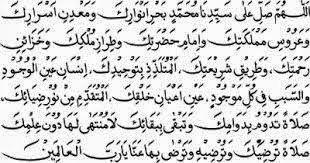 اَللّٰهُمَّ صَلِّ عَلَى سَيِّدِنَا مُحَمَّدٍ بَحْرِ أَنْوَارِكَ وَمَعْدِنِ أَسْرَارِكَ
وَعَرُوْسِ مَمْلَكَتِكَ وَإِمَامِ حَضْرَتِكَ وَطِرَازِ مُلْكِكَ وَخَزَائِنِ
رَحْمَتِكَ وَطَرِيْقِ شَرِيْعَتِكَ الْمُتَلَذِّذِ بِتَوْحِيْدِكَ إِنْسَانِ عَيْنِ الْوُجُوْدِ
وَالسَّبَبِ فِي كُلِّ مَوْجُوْدٍ عَيْنِ أَعْيَانِ خَلْقِكَ الْمُتَقَدِّمِ مِنْ نُوْرِ ضِيَائِكَ
صَلَاةً تَدُوْمُ بِدَوَامِكَ وَتَبْقَى بِبَقَائِكَ لَا مُنْتَهَى لَهَا دُوْنَ عِلْمِكَ
صَلَاةً تُرْضِيْكَ وَتُرْضِيْهِ وَتَرْضَى بِهَا عَنَّا يَا رَبَّ الْعَالَمِيْنَ